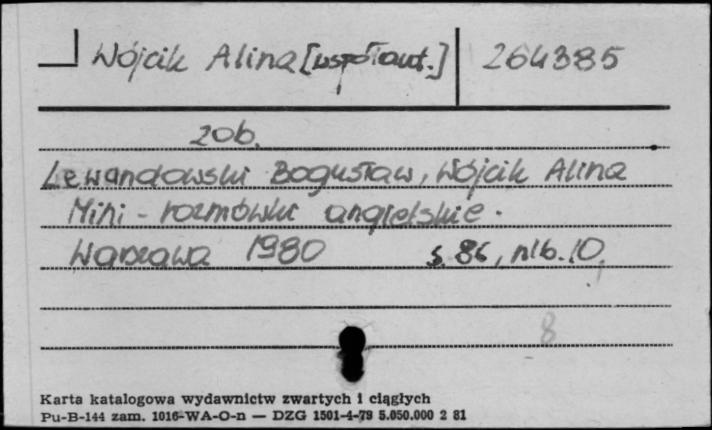 Wójcik Alina [współaut.] 264385
zob.
Lewandowski Bogusław, Wójcik Alina
Mini-rozmówki angielskie.
Warszawa 1980 s. 86, nlb. 10
8
Karta katalogowa wydawnictw zwartych i ciągłych
Pu-B-144 zam. 1016-WA-O-n — DZG 1501-4-79 5.050.000 2 81